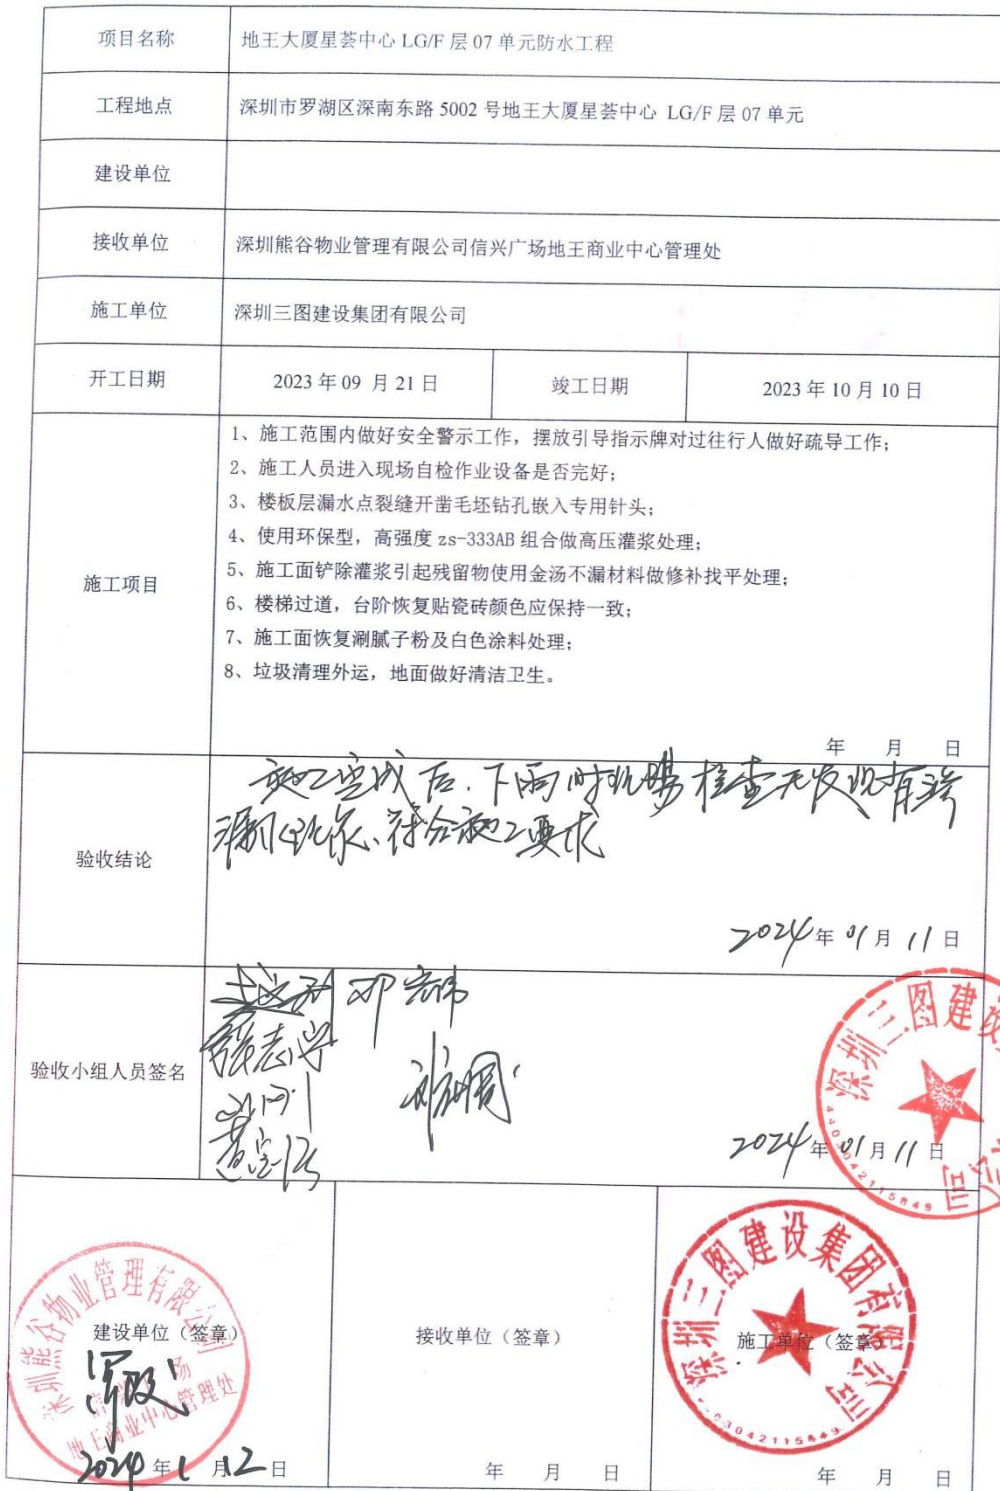 项目名称 地王大厦星荟中心 LG/F 层 07 单元防水工程
工程地点 深圳市罗湖区深南东路 5002 号地王大厦星荟中心 LG/F 层 07 单元
建设单位
接收单位 深圳熊谷物业管理有限公司信兴广场地王商业中心管理处
施工单位 深圳三图建设集团有限公司
开工日期 2023 年 09 月 21 日 竣工日期 2023 年 10 月 10 日
施工项目
1、施工范围内做好安全警示工作，摆放引导指示牌对过往行人做好疏导工作；
2、施工人员进入现场自检作业设备是否完好；
3、楼板层漏水点裂缝开凿毛坯钻孔嵌入专用针头；
4、使用环保型，高强度 zs-333AB 组合做高压灌浆处理；
5、施工面铲除灌浆引起残留物使用金汤不漏材料做修补找平处理；
6、楼梯过道，台阶恢复贴瓷砖颜色应保持一致；
7、施工面恢复涮腻子粉及白色涂料处理；
8、垃圾清理外运，地面做好清洁卫生。
年 月 日
验收结论
施工完成后，下雨时现场检查无发现有渗
漏现象、符合施工要求
2024年01月11日
验收小组人员签名
邓
志
2024年01月11日
深圳三图建设
公司
4403042115849
建设单位（签章）
深圳熊谷物业管理有限公司
信兴广场
地王商业中心管理处
2024年1月12日
接收单位（签章）
年 月 日
施工单位（签章）
深圳三图建设集团有限公司
4403042115849
年 月 日